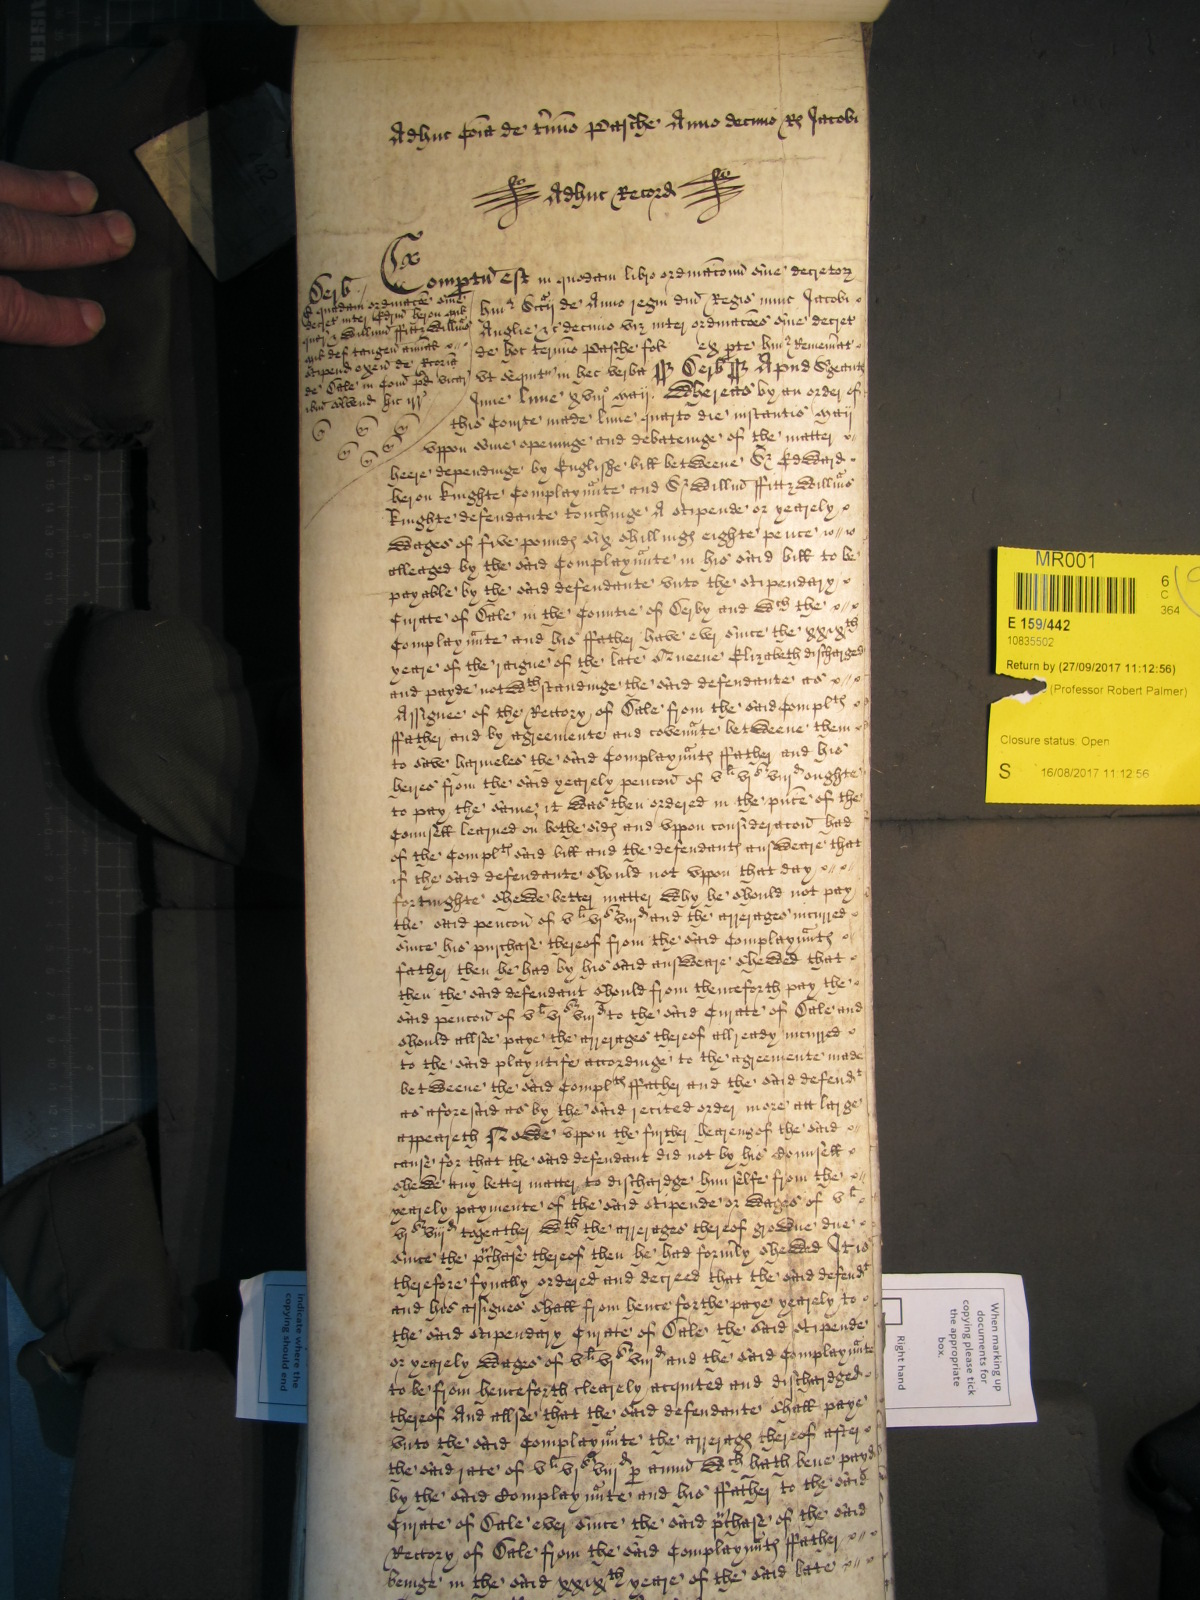 Adhuc Com̃ia de t'mio Pasche Anno decimo R̃ Jacobi
Adhuc Record
Compertu est in quodam libro ordinacionu siue decretor
hui' Scc̃ij de Anno regni dni Regis nunc Jacobi
Anglie &c decimo viz inter ordinac̃oes siue decret
de hoc termino Pasche fol ex p̱te hui' Rememorat
vt sequit' in hec verba Derb Apud Westm
June lune xviijo Maij. Whereas by an order of
this Courte made lune quarto die instantis Maij
vppon some openinge and debateinge of the matter
heere dependinge by Englishe bill betweene Sr Edward
heron knighte Complaynñte and Sr Willm̃ ffittzwillm̃s
knighte defendante touchinge A stipende or yearely
wages of five pounds six shillings eighte pence
alleaged by the said Complaynñte in his said bill to be
payable by the said defendante vnto the stipendary
Curate of Dale in the Countie of Derby and wth the
Complaynñte and his ffather have ever since the xxixth
yeare of the raigne of the late Queene Elizabeth discharged
and payde notwthstandinge the said defendante as
Assignee of the Rectory of Dale from the said Complts
ffather and by agreemente and coven̄nte betweene them
to save harmeles the said Complaynñts ffather and his
heires from the said yearely pencon of vli vjs viijd oughte
to pay the same, it was then ordered in the p̱nce of the
Counsell learned on bothe sids and vppon consideracon had
of the Complts said bill and the defendants answeare that
if the said defendante should not vppon that day
fortnighte shewe better matter why he should not pay
the said pencon of vli vjs viijd and the arrerages incurred
since his purchase thereof from the said Complaynñts
father then he had by his said answeare shewed that
then the said defendant should from thenceforth pay the
said pencon of vli vjs viijd to the said Curate of Dale and
should allsoe paye the arrerages thereof allready incurred
to the said playntife accordinge to the agreemente made
betweene the said Complts ffather and the said defendt
as aforesaid as by the said recited order more att large
appeareth Nowe vppon the further heareng of the said
cause for that the said defendant did not by his Counsell
shewe any better matter to dischardge himselfe from the
yearely paymente of the said stipende or wages of vli
vjs viijd togeather wth the arrerages thereof growne due
since the p̱chase thereof then he had form̃ly shewed It is
therefore fynally ordered and decreed that the said defendt
and his assignes shall from hence forthe paye yearely to
the said stipendary Curate of Dale the said stipende
or yearely wages of vli vjs viijd and the said Complaynñte
to be from henceforth clearely acquited and dischardged
thereof And allsoe that the said defendante shall paye
vnto the said Complaynñte the arrerags thereof after
the said rate of vli vjs viijd p̱ annu wch hath bene payd
by the said Complaynñte and his ffather to the said
Curate of Dale ever since the said p̱chase of the said
Rectory of Dale from the said Complaynñts ffather
beinge in the said xxixth yeare of the said late
Derb
de quadam ordinac̃oe siue
decret inter Edrm̃ heron mil
quer & Willm̃ ffittzwillm̃s
mil def tangen annual
stipend exeun de Rcoria
de Dale in Com̃ p̱d
ibm̃ solvend hic irr
MR001
6
C
364
E 159/442
10835502
Return by (27/09/2017 11:12:56)
(Professor Robert Palmer)
Closure status: Open
S 16/08/2017 11:12:56
indicate where the
copying should end
When marking up
documents for
copying please tick
the appropriate
box.
Right hand